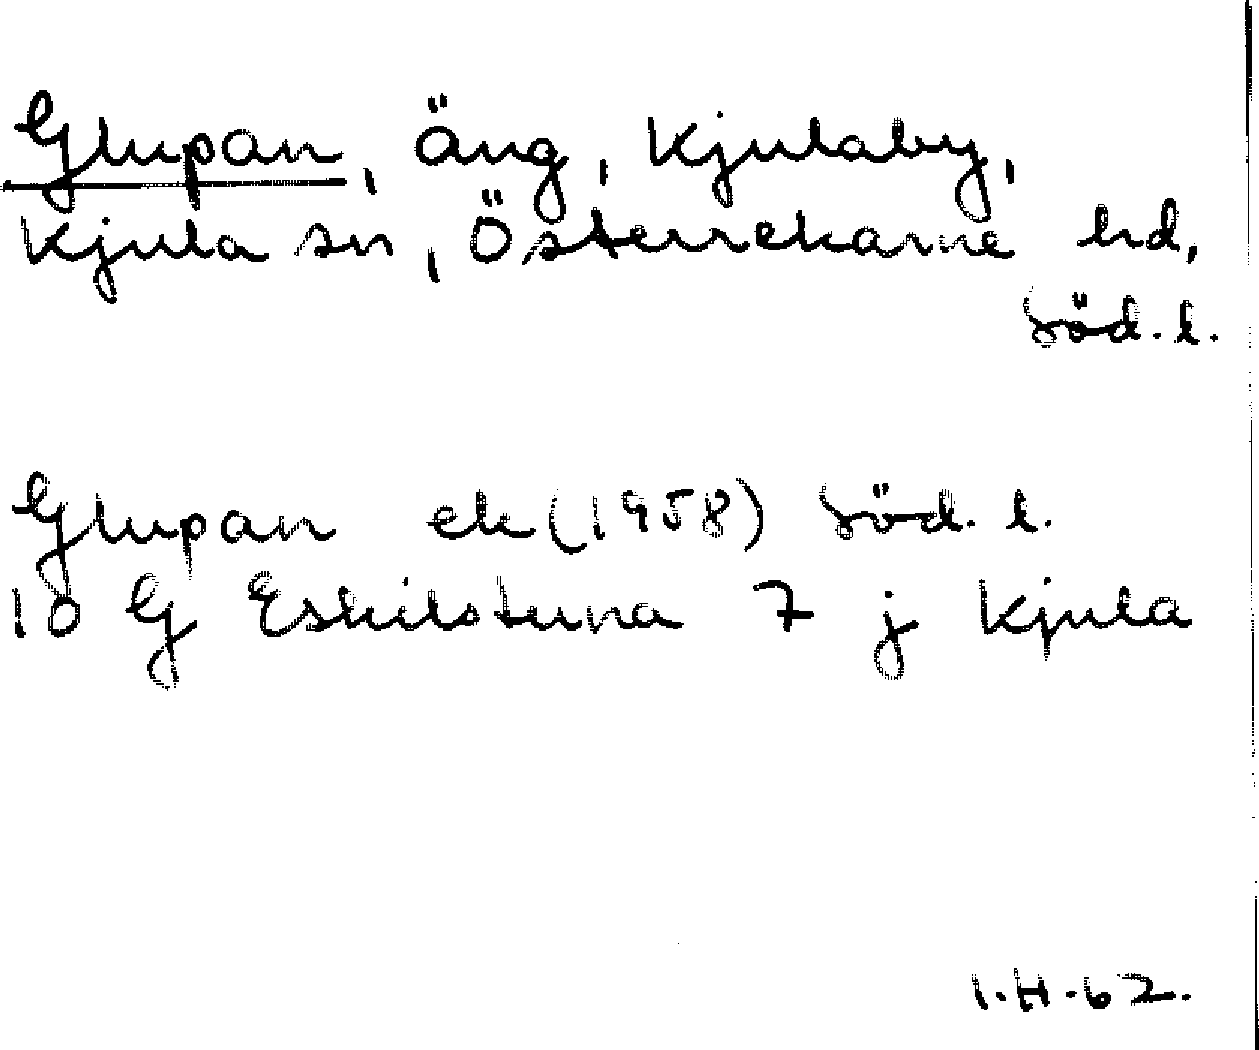 Glupan, äng, Kjulaby,
Kjula sn, Österrekarne hd,
Söd. l.
Glupan ek (1958) Söd. l.
10 G Eskilstuna 7 j Kjula
I.H.62.